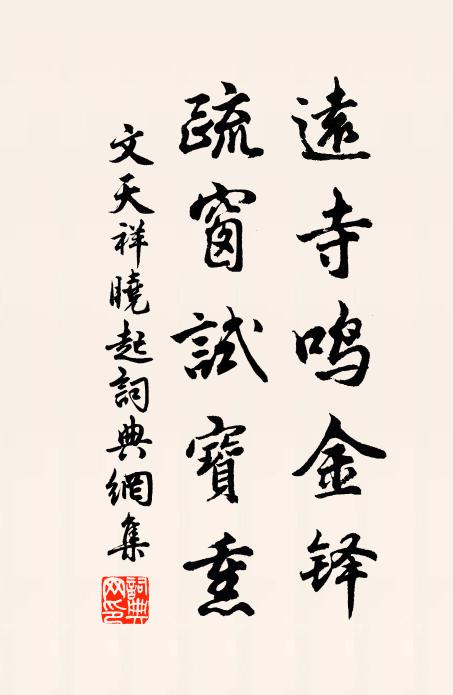 遠寺鸣金铎
疏窗試寶熏
文天祥曉起詞典網集
詞典网印